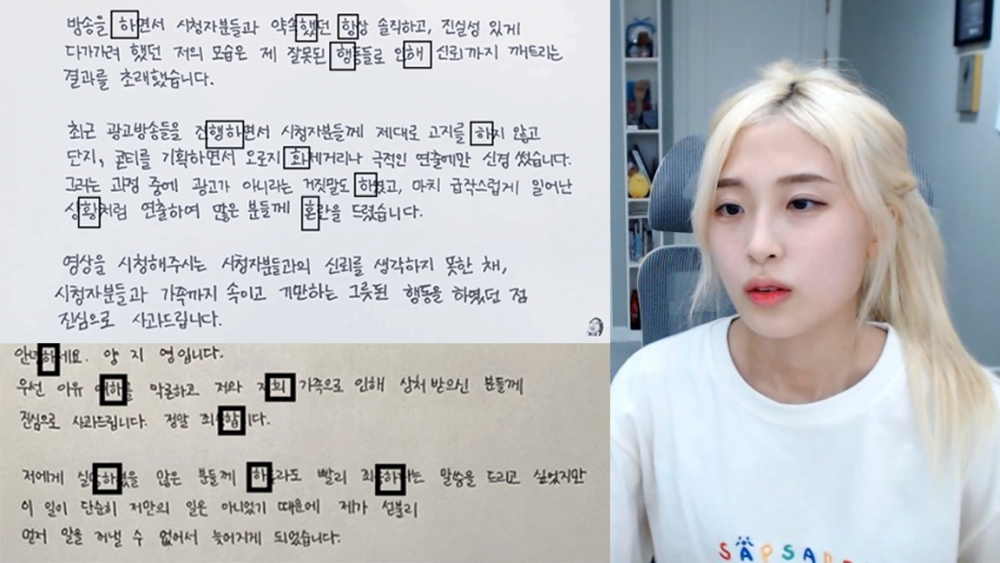 방송을 하면서 시청자분들과 약속했던 항상 솔직하고, 진실성 있게
다가가려 했던 저의 모습은 제 잘못된 행동들로 인해 신뢰까지 깨트리는
결과를 초래했습니다.
최근 광고방송들을 진행하면서 시청자분들께 제대로 고지를 하지 않고
단지, 기획하면서 오로지 화제거리나 극적인 연출에만 신경 썼습니다.
그러는 과정 중에 광고가 아니라는 거짓말도 하였고, 마치 급작스럽게 일어난
상황처럼 연출하여 많은 분들께 혼란을 드렸습니다.
영상을 시청해주시는 시청자분들과의 신뢰를 생각하지 못한 채,
시청자분들과 가족까지 속이고 기만하는 그릇된 행동을 하였던 점
진심으로 사과드립니다.
안녕하세요. 양 지 영입니다.
우선 이유 여하를 막론하고 저와 저희 가족으로 인해 상처 받으신 분들께
진심으로 사과드립니다. 정말 죄송합니다.
저에게 실망하셨을 많은 분들께 하루라도 빨리 죄송하다는 말씀을 드리고 싶었지만
이 일이 단순히 저만의 일은 아니었기 때문에 제가 섣불리
먼저 말을 꺼낼 수 없어서 늦어지게 되었습니다.